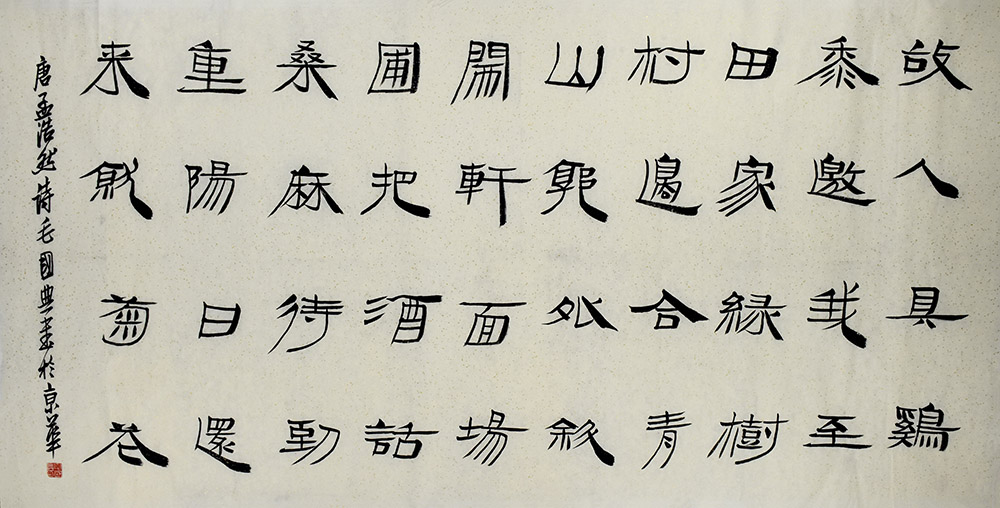 故人具鷄
黍邀我至
田家緑樹
村邊合青
山郭外斜
開軒面場
圃把酒話
桑麻待到
重陽日還
来就菊花
唐孟浩然詩毛國典書於京華